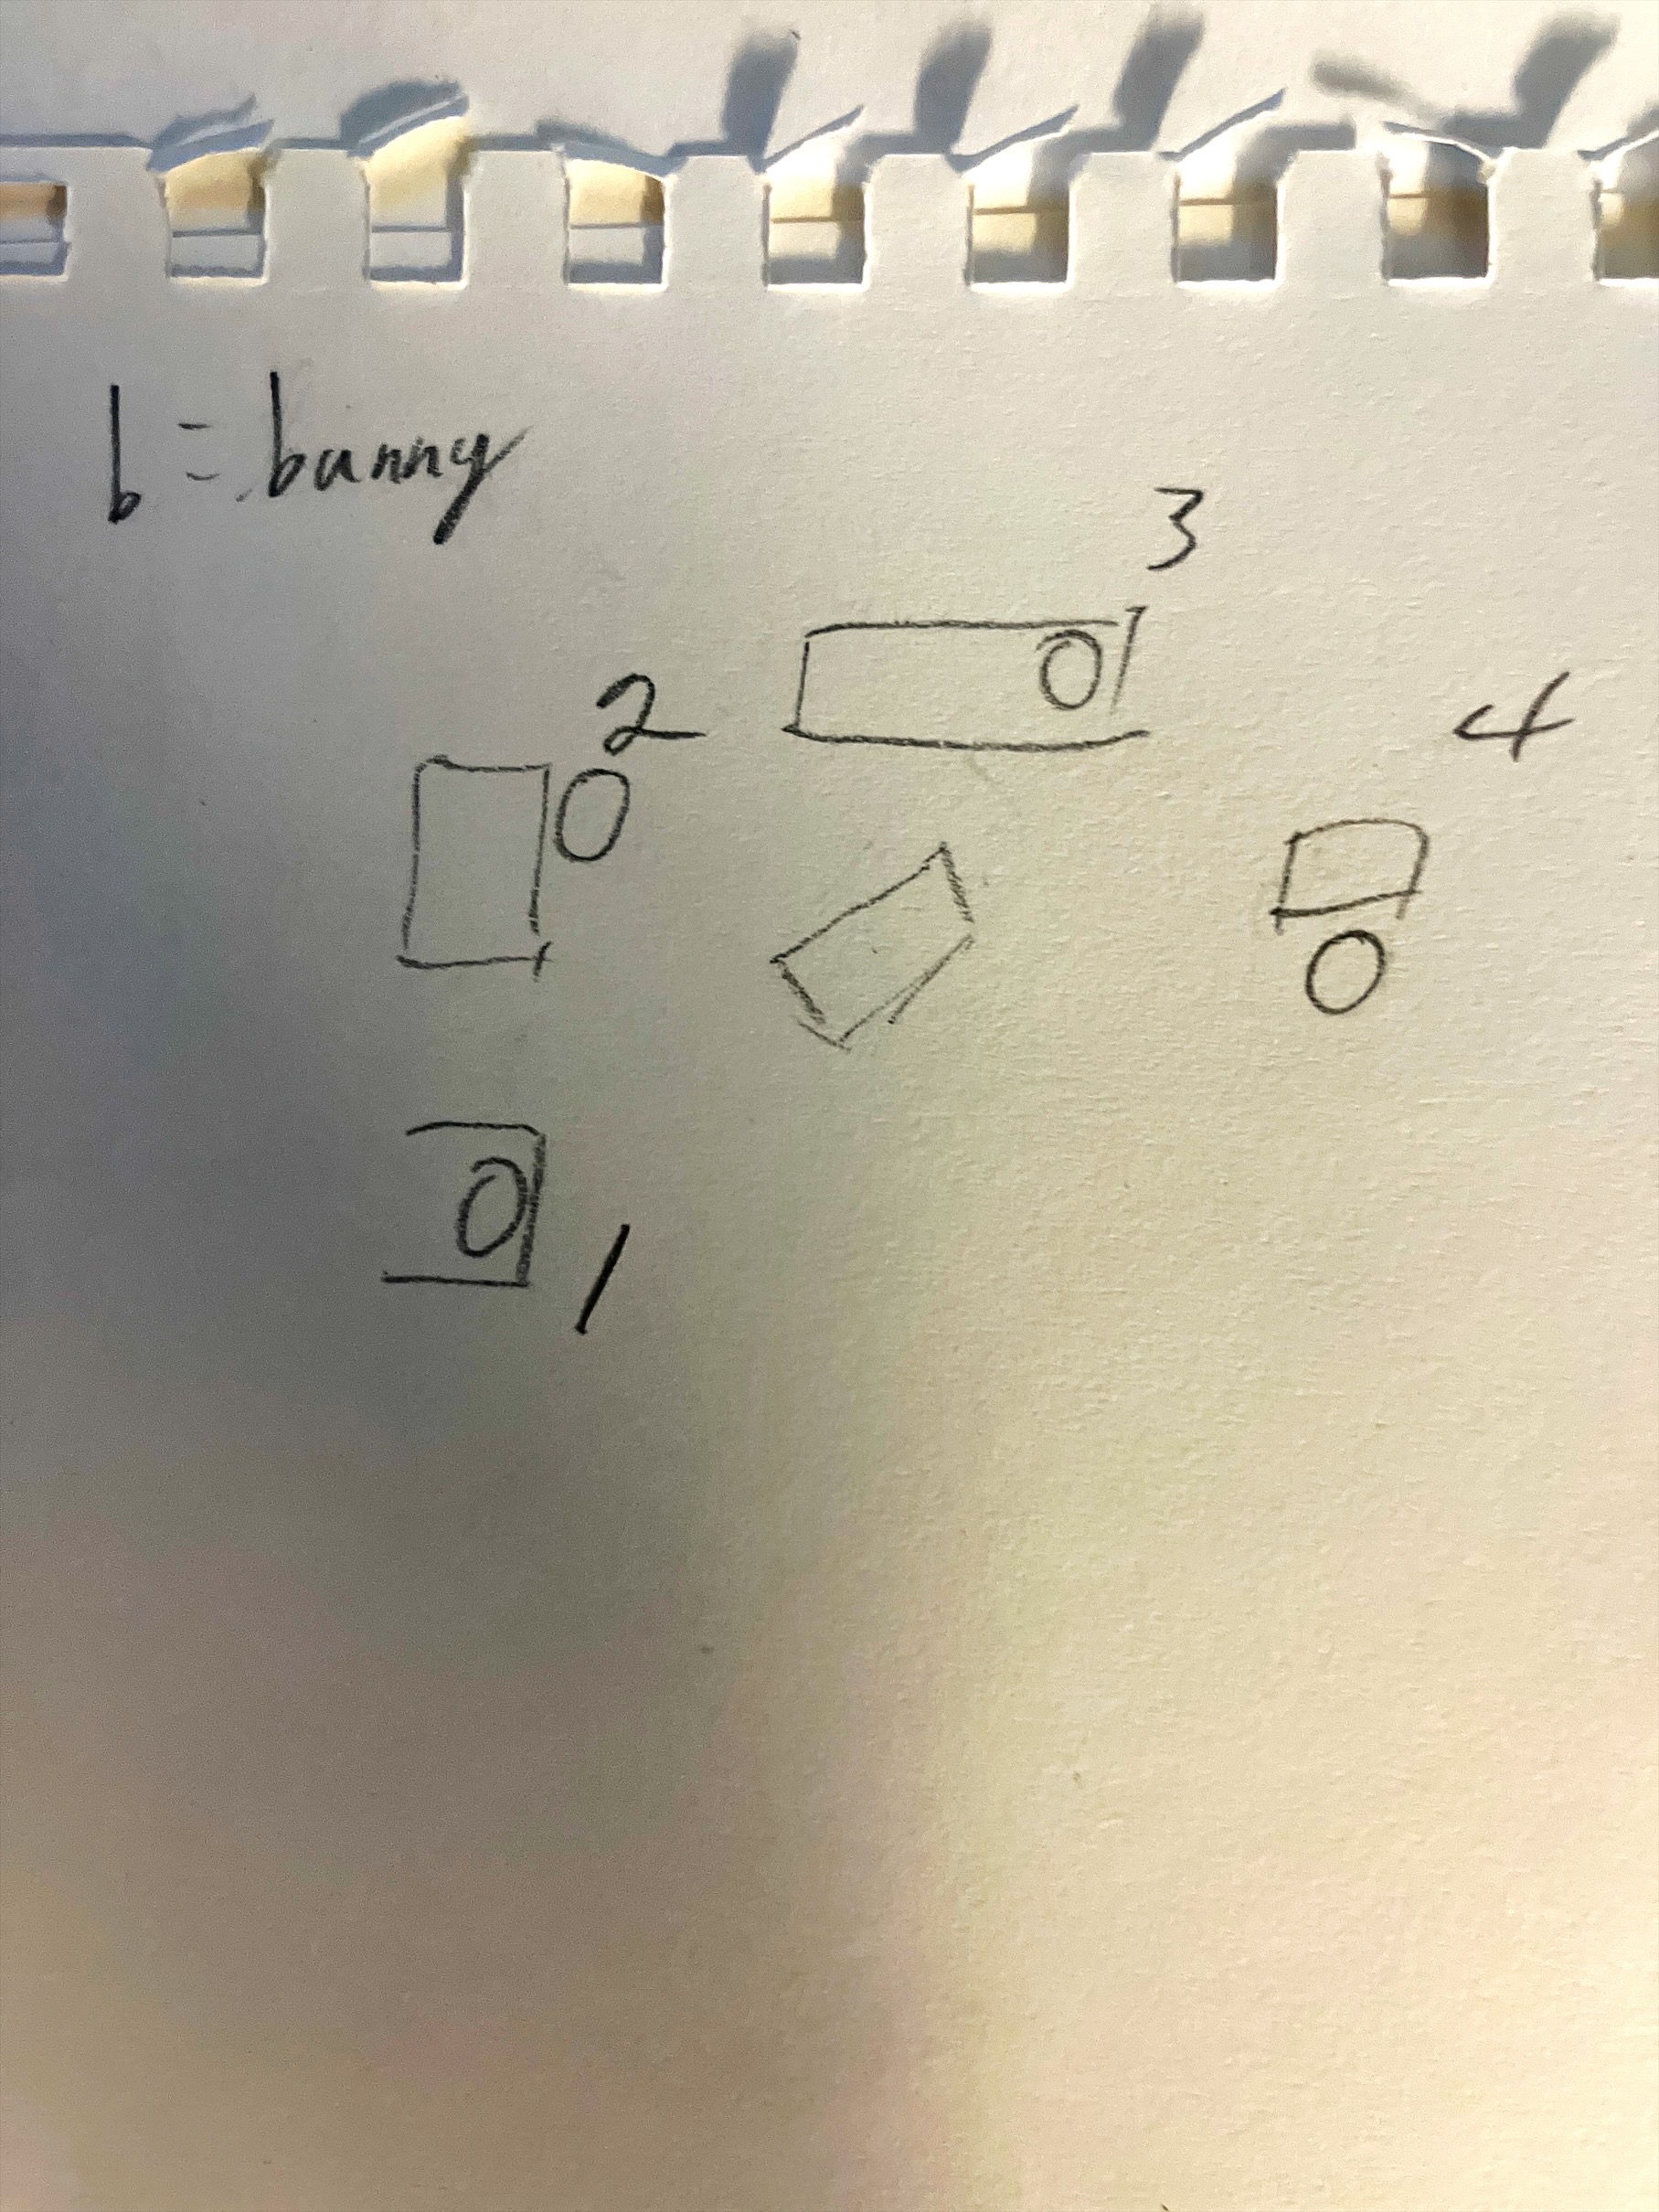 b = bunny
3
2
4
1